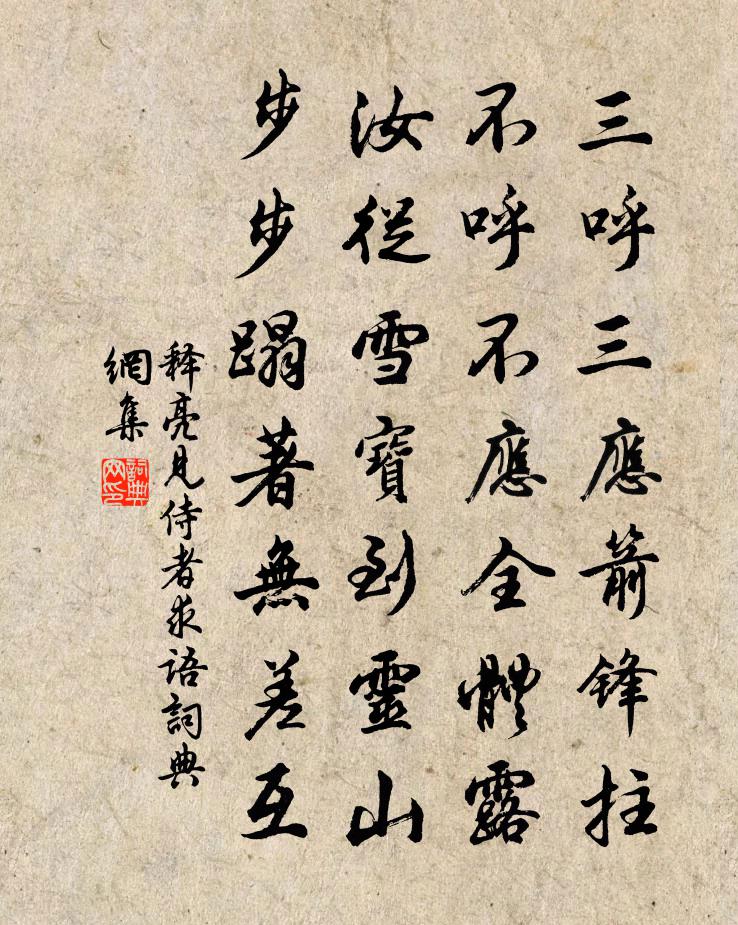 三呼三應箭鋒拄
不呼不應全體露
汝從雪寶到靈山
步步蹋著無差互
釋亮見侍者求語詞典
網集
詞典
网印